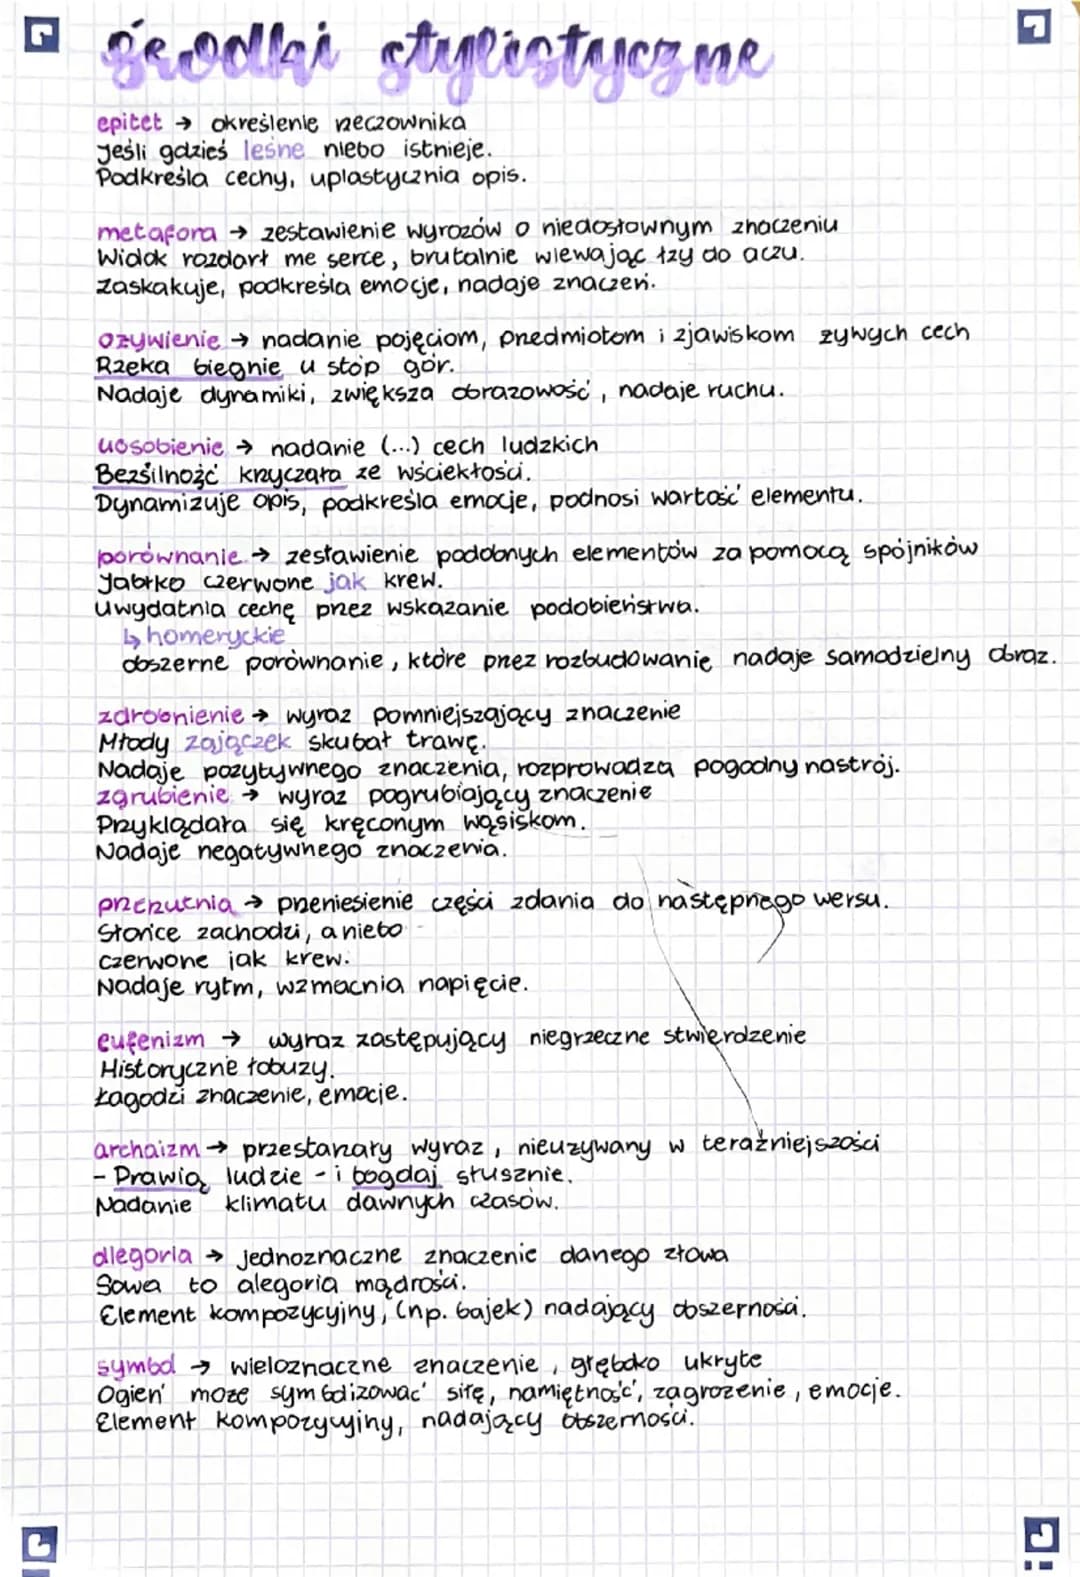 środki stylistyczne
epitet → określenie rzeczownika
Jeśli gdzieś leśne niebo istnieje.
Podkreśla cechy, uplastycznia opis.
metafora → zestawienie wyrazów o niedosłownym znaczeniu
Widok rozdarł me serce, brutalnie wlewając łzy do oczu.
Zaskakuje, podkreśla emocje, nadaje znaczeń.
ożywienie → nadanie pojęciom, przedmiotom i zjawiskom żywych cech
Rzeka biegnie u stóp gór.
Nadaje dynamiki, zwiększa obrazowość, nadaje ruchu.
uosobienie → nadanie (...) cech ludzkich
Bezsilność krzyczała ze wściekłości.
Dynamizuje opis, podkreśla emocje, podnosi wartość elementu.
porównanie → zestawienie podobnych elementów za pomocą spójników
Jabłko czerwone jak krew.
Uwydatnia cechę przez wskazanie podobieństwa.
↳ homeryckie
obszerne porównanie, które przez rozbudowanie nadaje samodzielny obraz.
zdrobnienie → wyraz pomniejszający znaczenie
Młody zajączek skubał trawę.
Nadaje pozytywnego znaczenia, rozprowadza pogodny nastrój.
zgrubienie → wyraz pogrubiający znaczenie
Przyklądała się kręconym wąsiskom.
Nadaje negatywnego znaczenia.
przerzutnia → przeniesienie części zdania do następnego wersu.
Słońce zachodzi, a niebo
czerwone jak krew.
Nadaje rytm, wzmacnia napięcie.
eufenizm → wyraz zastępujący niegrzeczne stwierdzenie
Historyczne łobuzy.
Łagodzi znaczenie, emocje.
archaizm → przestarzały wyraz, nieużywany w teraźniejszości
- Prawią ludzie - i bogdaj słusznie.
Nadanie klimatu dawnych czasów.
alegoria → jednoznaczne znaczenie danego złowa
Sowa to alegoria mądrości.
Element kompozycyjny, (np. bajek) nadający obszerności.
symbol → wieloznaczne znaczenie, głęboko ukryte
Ogień może symbolizować siłę, namiętność, zagrożenie, emocje.
Element kompozycyjny, nadający obszerności.